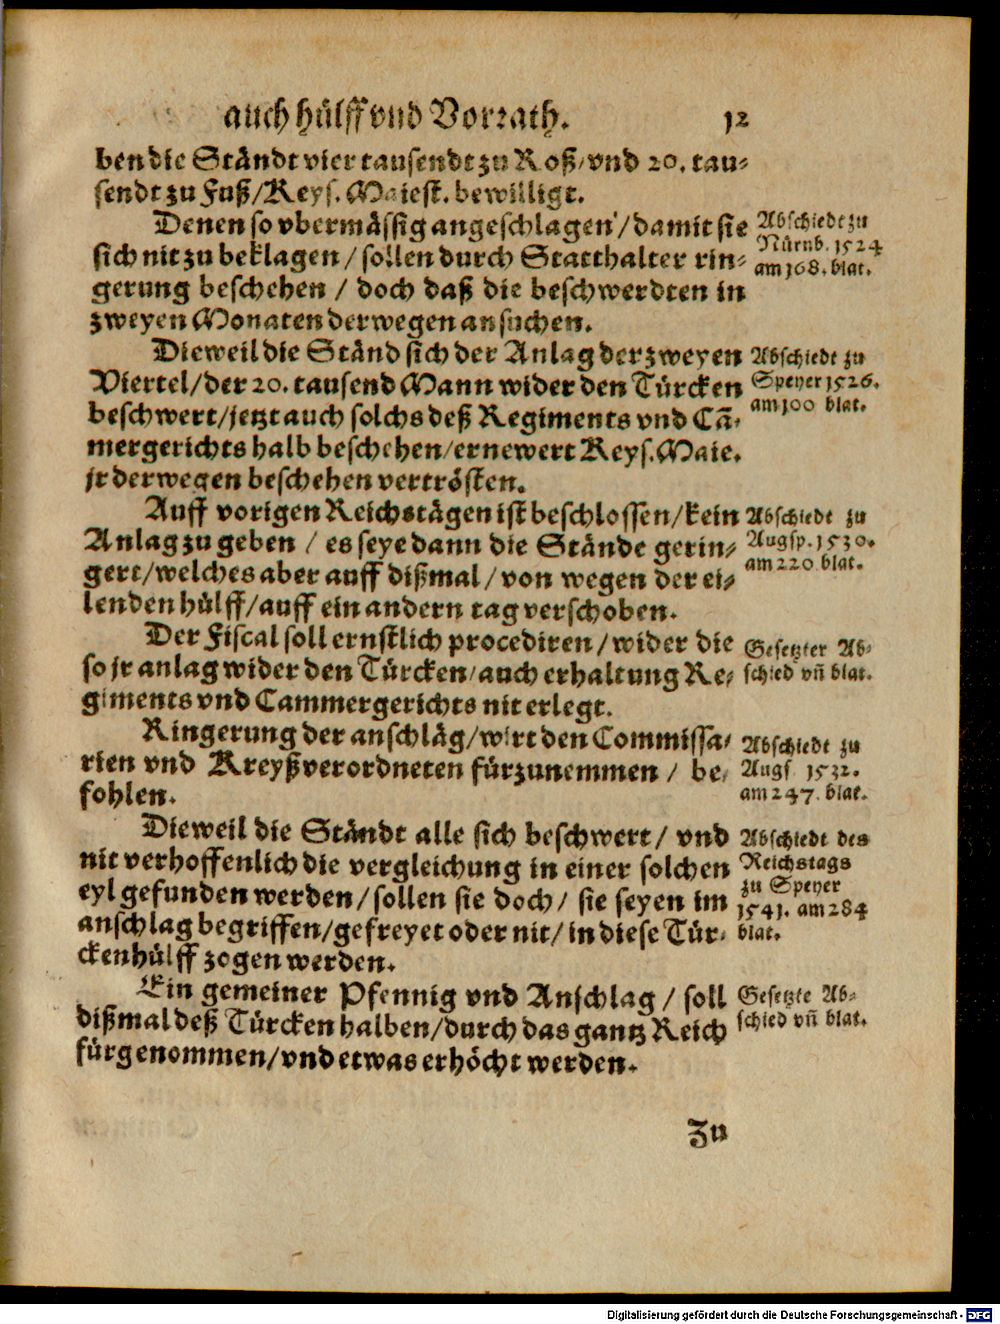 auch hülff vnd Vorrath. 12
ben die Ständt vier tausendt zu Roß/vnd 20. tau-
sendt zu Fuß/Keys. Maiest. bewilligt.
Denen so vbermässig angeschlagen/damit sie
sich nit zu beklagen/sollen durch Statthalter rin-
gerung beschehen / doch daß die beschwerdten in
zweyen Monaten derwegen ansuchen.
Abschiedt zu
Nürnb. 1524
am 168. blat.
Dieweil die Ständ sich der Anlag der zweyen
Viertel/der 20. tausend Mann wider den Türcken
beschwert/jetzt auch solchs deß Regiments vnd Cā-
mergerichts halb beschehen/ernewert Keys. Maie.
jr derwegen beschehen vertrösten.
Abschiedt zu
Speyer 1526.
am 100 blat.
Auff vorigen Reichstägen ist beschlossen/kein
Anlag zu geben / es seye dann die Stände gerin-
gert/welches aber auff dißmal/von wegen der ei-
lenden hülff/auff ein andern tag verschoben.
Abschiedt zu
Augsp. 1530.
am 220 blat.
Der Fiscal soll ernstlich procediren/wider die
so jr anlag wider den Türcken/auch erhaltung Re-
giments vnd Cammergerichts nit erlegt.
Gesetzter Ab-
schied vñ blat.
Ringerung der anschläg/wirt den Commissa-
rien vnd Kreyßverordneten fürzunemmen / be-
fohlen.
Abschiedt zu
Augs 1532.
am 247. blat.
Dieweil die Ständt alle sich beschwert/ vnd
nit verhoffenlich die vergleichung in einer solchen
eyl gefunden werden/sollen sie doch/ sie seyen im
anschlag begriffen/gefreyet oder nit/in diese Tür-
ckenhülff zogen werden.
Abschiedt des
Reichstags
zu Speyer
1541. am 284
blat.
Ein gemeiner Pfennig vnd Anschlag / soll
dißmal deß Türcken halben/durch das gantz Reich
fürgenommen/vnd etwas erhöcht werden.
Gesetzte Ab-
schied vñ blat.
Zu
Digitalisierung gefördert durch die Deutsche Forschungsgemeinschaft - DFG